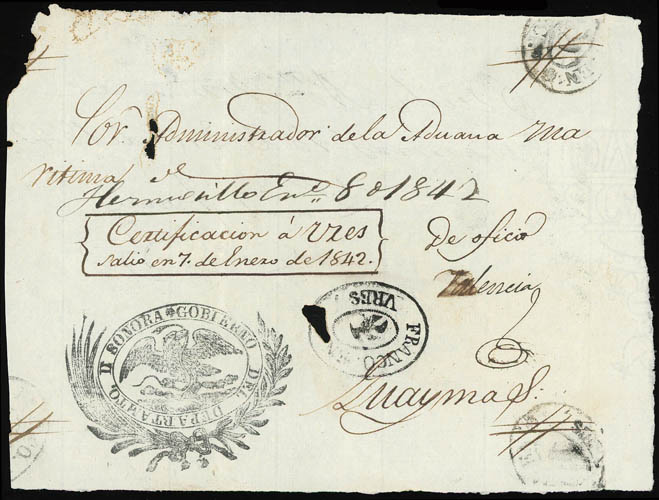 Sor Administrador de la Aduana ma
ritima de
Hermosillo En.º 8 de 1842
Certificacion á Vres
salió en 7. de Enero de 1842.
De oficio
Valencia
FRANCO
VRES
GOBIERNO DEL DEPARTAMTO. D SONORA
Guaymas.